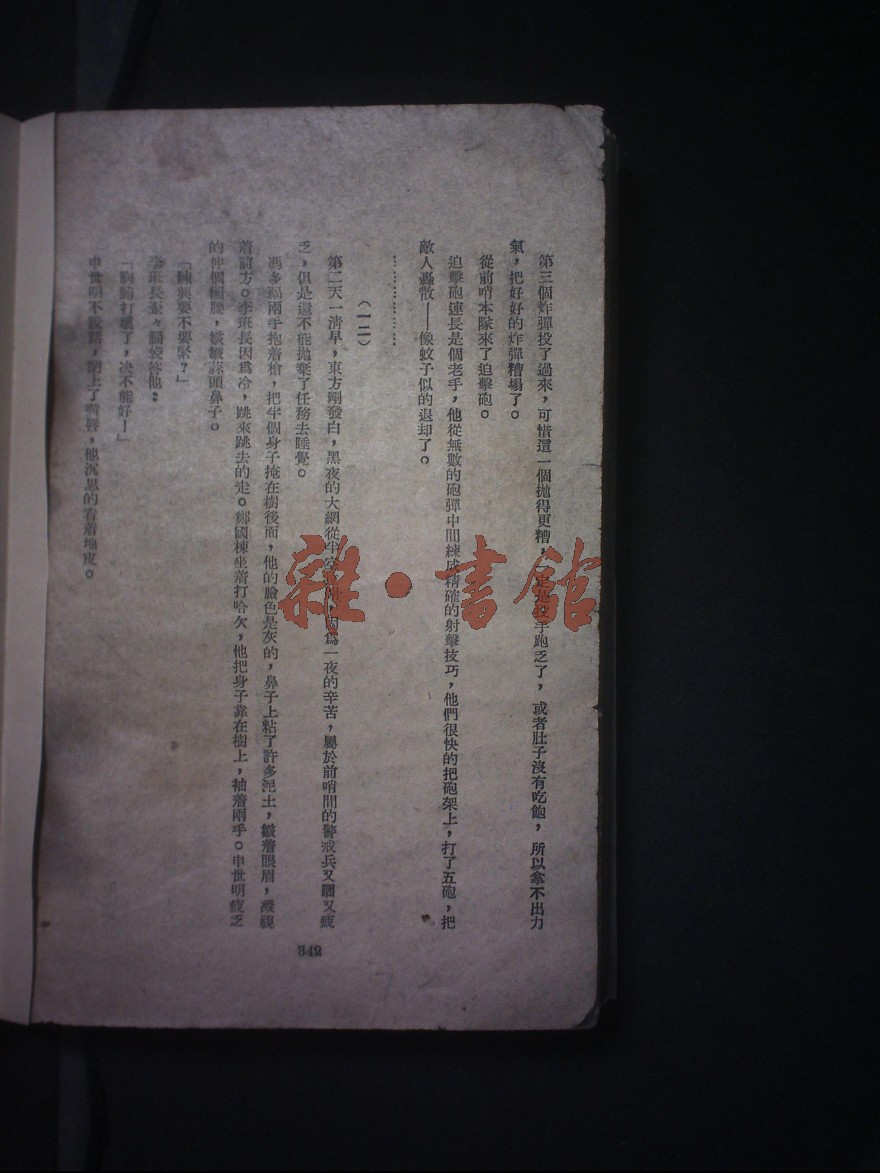 第三個炸彈投了過來，可惜這一個拋得更糟，手跑乏了，或者肚子沒有吃飽，所以拿不出力
氣，把好好的炸彈糟塌了。
從前哨本隊來了迫擊砲。
迫擊砲連長是個老手，他從無數的砲彈中間練成精確的射擊技巧，他們很快的把砲架上，打了五砲，把
敵人轟散——像蚊子似的退却了。
………………
（一二）
第二天一清早，東方剛發白，黑夜的大網從半空爲一夜的辛苦，屬於前哨間的警戒兵又睏又疲
乏，但是還不能拋棄了任務去睡覺。
馮多福兩手抱着槍，把半個身子掩在樹後面，他的臉色是灰的，鼻子上粘了許多泥土，皺着眼眉，凝視
着前方。李班長因爲冷，跳來跳去的走。鄭國棟坐着打哈欠，他把身子靠在樹上，袖着兩手。申世明疲乏
的伸個懶腰，皺皺蒜頭鼻子。
「陳興要不要緊？」
李班長歪々腦袋答他：
「胸前打壞了，决不能好！」
申世明不說話，閉上了嘴唇，他沉思的看着地皮。
342
雜·書館